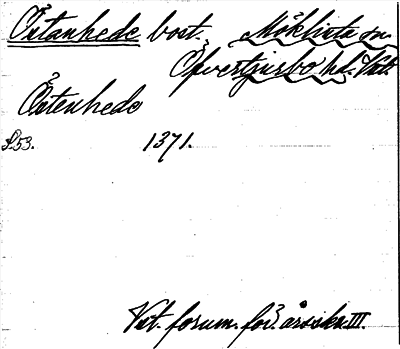 Östanhede bost. Möklinta sn.
Öfvertjurbo hd. Vstl.
Östenhede
S. 53. 1371.
Vst. fornm. för. årsskr. III.